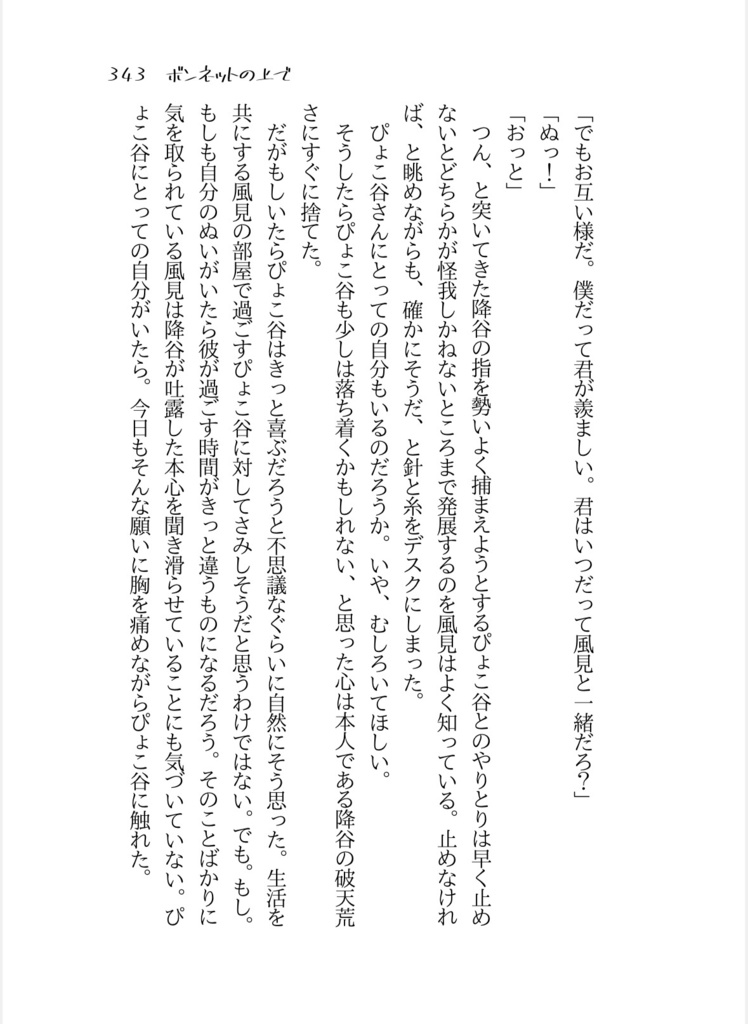 343 ボンネットの上で
「でもお互い様だ。僕だって君が羨ましい。君はいつだって風見と一緒だろ？」
「ぬっ！」
「おっと」
つん、と突いてきた降谷の指を勢いよく捕まえようとするぴょこ谷とのやりとりは早く止め
ないとどちらかが怪我しかねないところまで発展するのを風見はよく知っている。止めなけれ
ば、と眺めながらも、確かにそうだ、と針と糸をデスクにしまった。
ぴょこ谷さんにとっての自分もいるのだろうか。いや、むしろいてほしい。
そうしたらぴょこ谷も少しは落ち着くかもしれない、と思った心は本人である降谷の破天荒
さにすぐに捨てた。
だがもしいたらぴょこ谷はきっと喜ぶだろうと不思議なぐらいに自然にそう思った。生活を
共にする風見の部屋で過ごすぴょこ谷に対してさみしそうだと思うわけではない。でも。もし。
もしも自分のぬいがいたら彼が過ごす時間がきっと違うものになるだろう。そのことばかりに
気を取られている風見は降谷が吐露した本心を聞き滑らせていることにも気づいていない。ぴ
ょこ谷にとっての自分がいたら。今日もそんな願いに胸を痛めながらぴょこ谷に触れた。